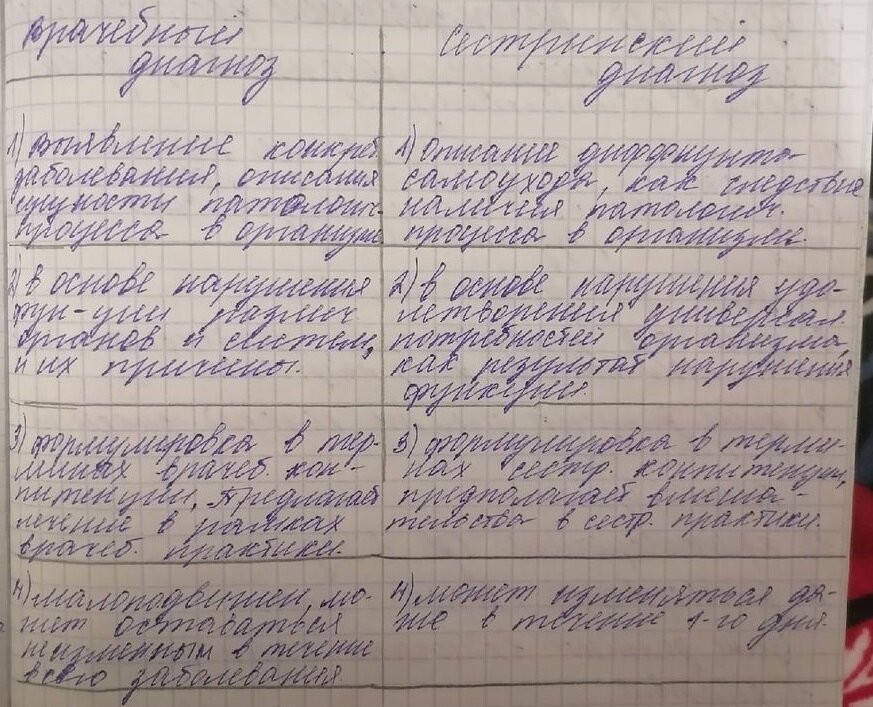 врачебный
диагноз
сестринский
диагноз
1) выявление конкрет.
заболевания, описания
сущности патологич.
процесса в организме
1) описание диффицита
самоухода, как следствие
наличия патологич.
процесса в организме.
2) в основе нарушения
фун-ции различ
органов и систем,
и их причины.
2) в основе нарушения удо-
летворения универсал.
потребностей организма,
как результат нарушения
функции.
3) формулировка в тер-
минах врачеб. ком-
питенции, предлагает
лечение в рамках
врачеб. практики.
3) формулировка в терми-
нах сестр. компитенции,
предполагает вмеша-
тельства в сестр. практики.
4) малоподвижен, мо-
жет оставаться
неизменным в течение
всего заболевания
4) может изменяться да-
же в течение 1-го дня.